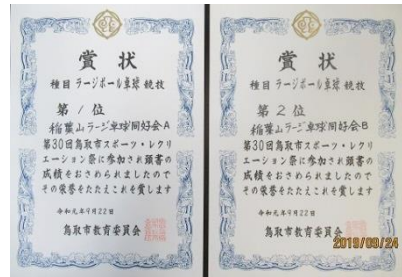 賞状
種目 ラージボール卓球 競技
第1位
稲葉山ラージ卓球同好会A
第30回鳥取市スポーツ・レクリ
エーション祭に参加され頭書の
成績をおさめられましたので
その栄誉をたたえこれを賞します
令和元年9月22日
鳥取市教育委員会
賞状
種目 ラージボール卓球 競技
第2位
稲葉山ラージ卓球同好会B
第30回鳥取市スポーツ・レクリ
エーション祭に参加され頭書の
成績をおさめられましたので
その栄誉をたたえこれを賞します
令和元年9月22日
鳥取市教育委員会
2019/09/24